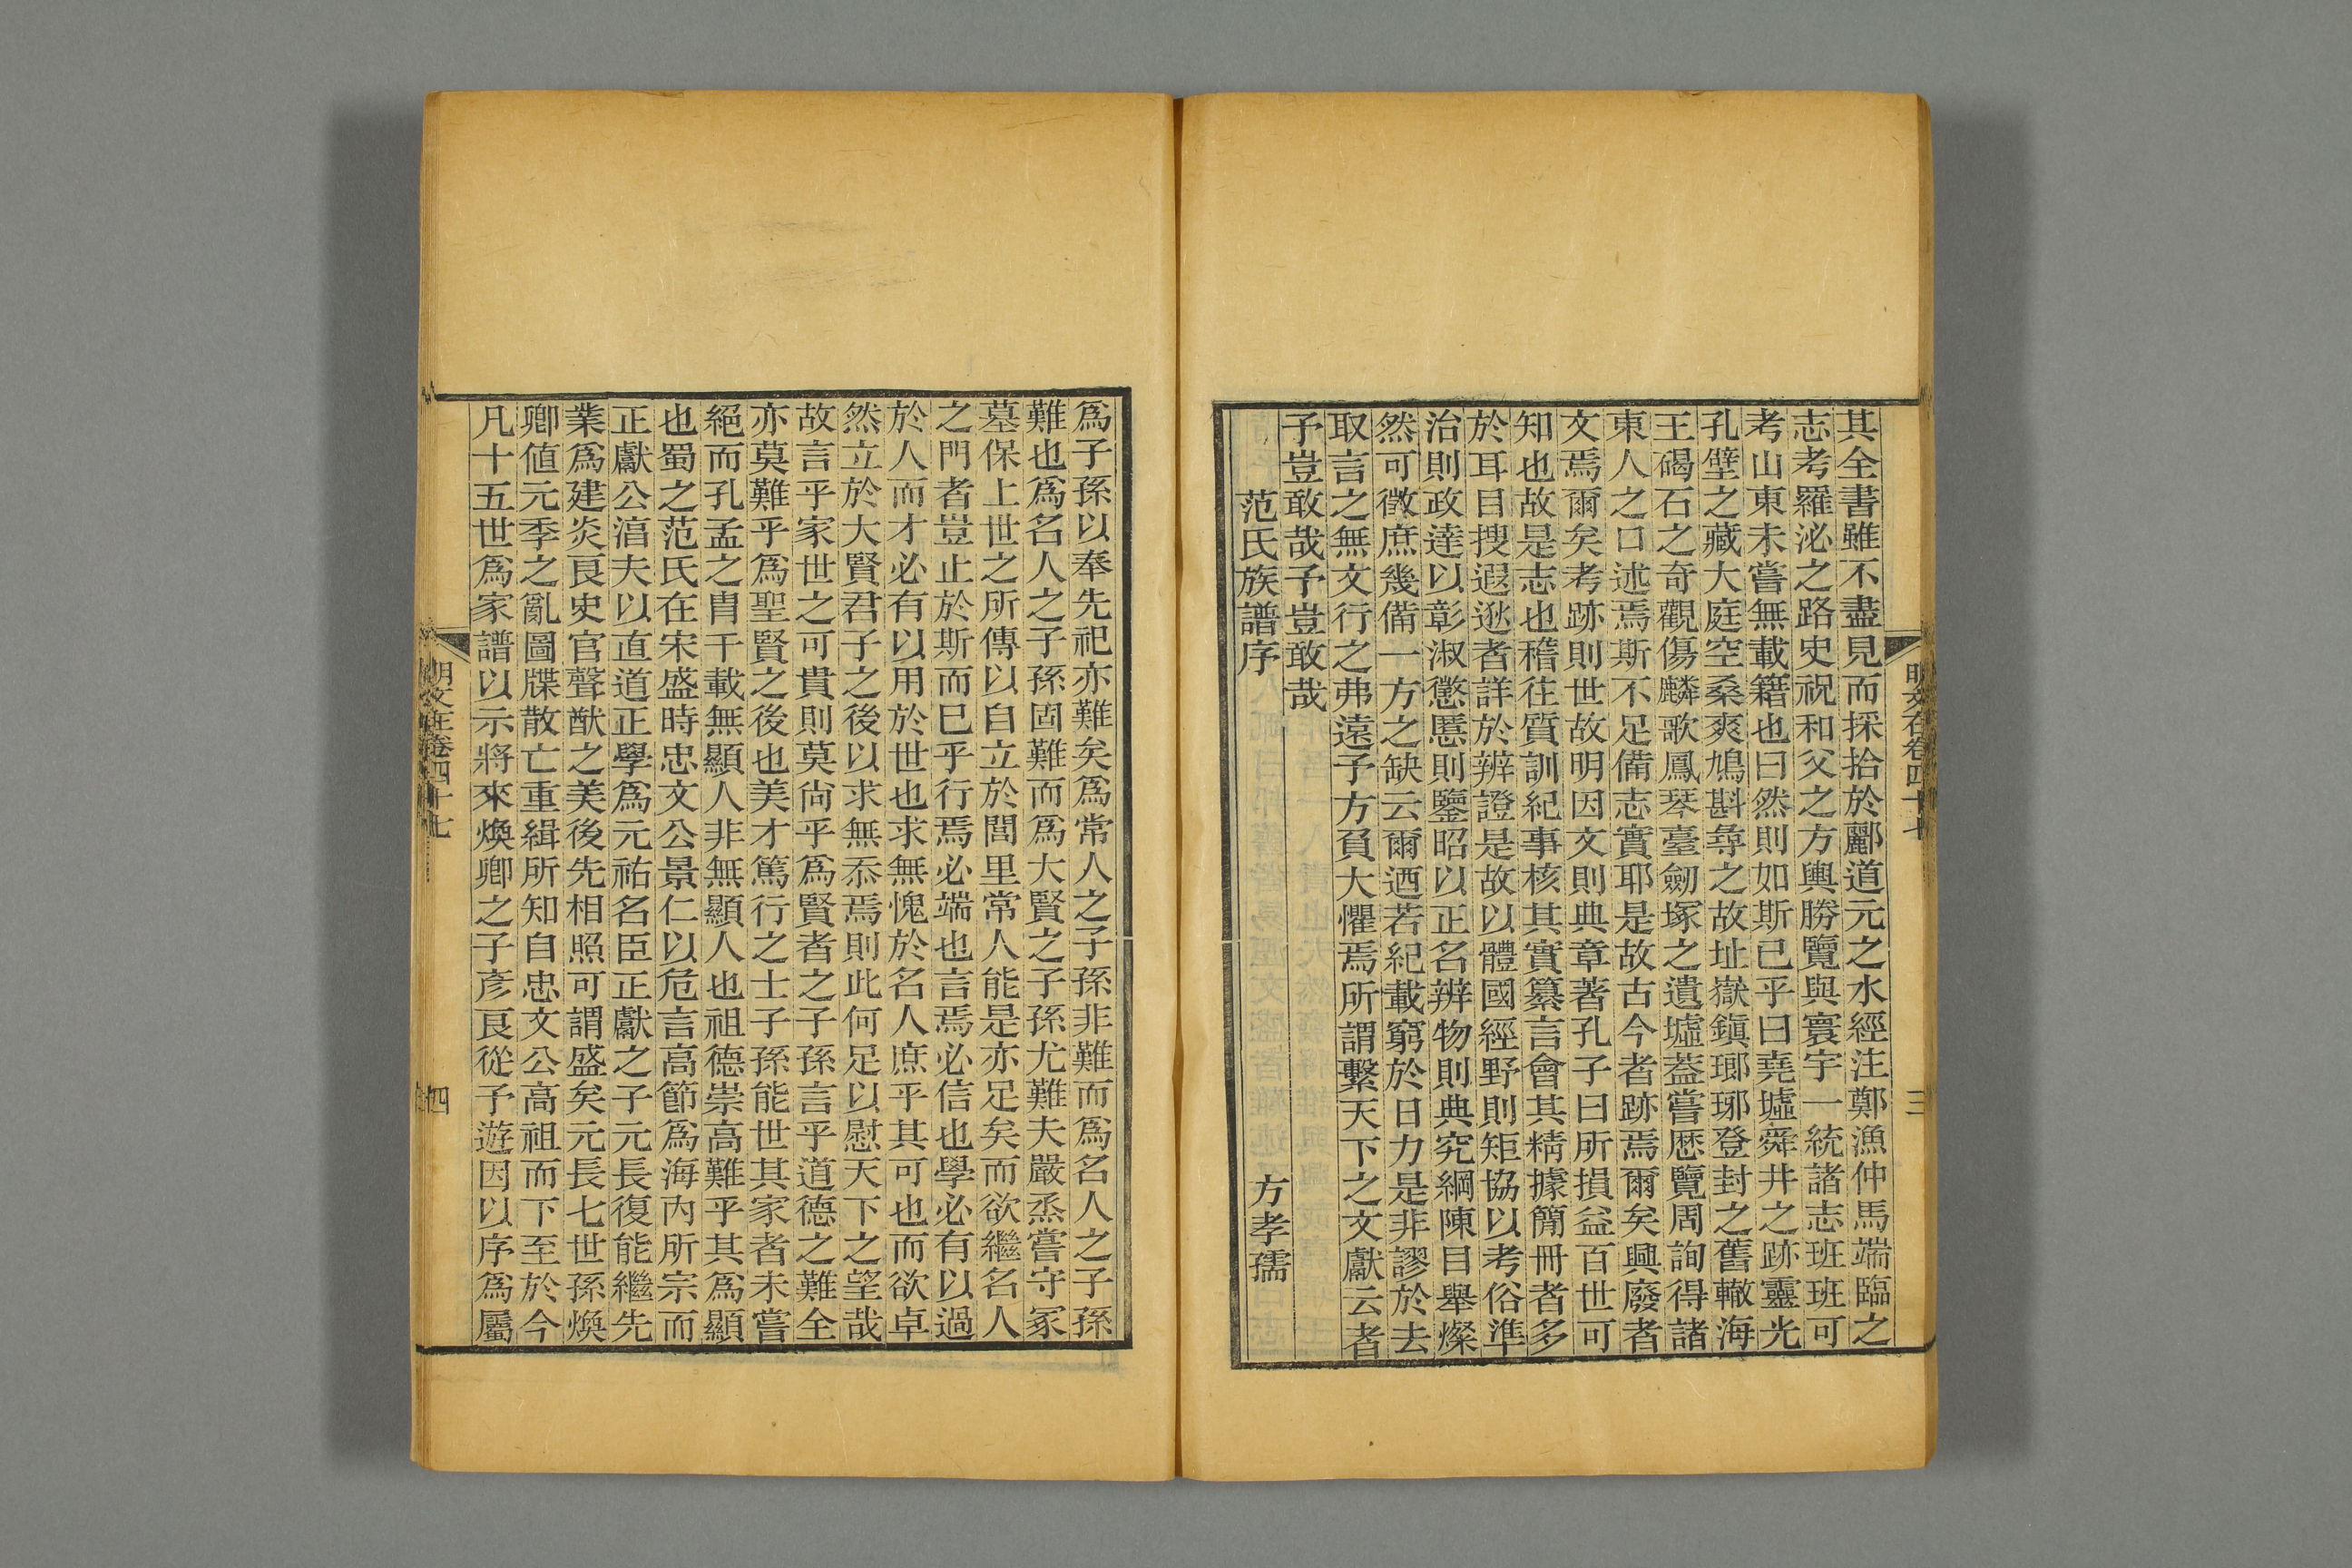 其全書雖不盡見而採拾於酈道元之水經注鄭漁仲馬端臨之
志考羅泌之路史祝和父之方輿勝覽與寰宇一統諸志班班可
考山東未嘗無載籍也曰然則如斯已乎曰堯墟舜井之跡靈光
孔壁之藏大庭空桑爽鳩斟尋之故址嶽鎭瑯琊登封之舊轍海
王碣石之奇觀傷麟歌鳳琴臺劒塚之遺墟葢嘗歷覽周詢得諸
東人之口述焉斯不足備志實耶是故古今者跡焉爾矣興廢者
文焉爾矣考跡則世故明因文則典章著孔子曰所損益百世可
知也故是志也稽往質訓紀事核其實纂言會其精據簡冊者多
於耳目搜遐逖者詳於辨證是故以體國經野則矩協以考俗準
治則政達以彰淑懲慝則鑒昭以正名辨物則典究綱陳目舉燦
然可徵庶幾備一方之缺云爾迺若紀載窮於日力是非謬於去
取言之無文行之弗遠予方負大懼焉所謂繫天下之文獻云者
予豈敢哉予豈敢哉
范氏族譜序 方孝孺
明文在卷四十七
三
爲子孫以奉先祀亦難矣爲常人之子孫非難而爲名人之子孫
難也爲名人之子孫固難而爲大賢之子孫尤難夫嚴烝嘗守冢
墓保上世之所傳以自立於閭里常人能是亦足矣而欲繼名人
之門者豈止於斯而已乎行焉必端也言焉必信也學必有以過
於人而才必有以用於世也求無愧於名人庶乎其可也而欲卓
然立於大賢君子之後以求無忝焉則此何足以慰天下之望哉
故言乎家世之可貴則莫尙乎爲賢者之子孫言乎道德之難全
亦莫難乎爲聖賢之後也美才篤行之士子孫能世其家者未嘗
絕而孔孟之胄千載無顯人非無顯人也祖德崇高難乎其爲顯
也蜀之范氏在宋盛時忠文公景仁以危言高節爲海內所宗而
正獻公淳夫以直道正學爲元祐名臣正獻之子元長復能繼先
業爲建炎良史官聲猷之美後先相照可謂盛矣元長七世孫煥
卿值元季之亂圖牒散亡重緝所知自忠文公高祖而下至於今
凡十五世爲家譜以示將來煥卿之子彥良從予遊因以序爲屬
明文在卷四十七
四